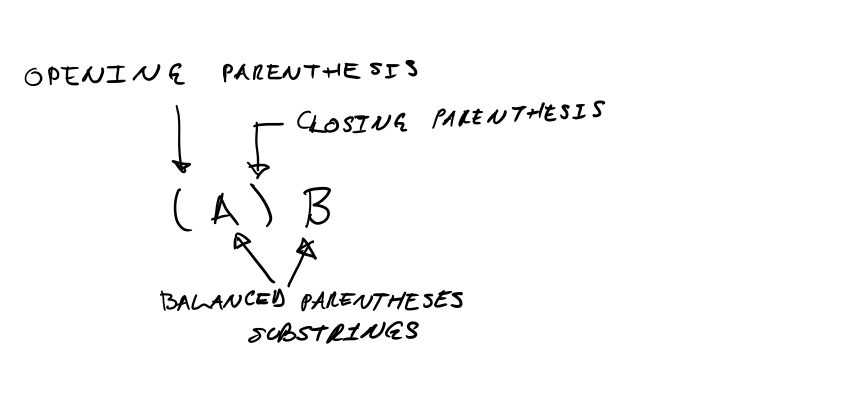 OPENING PARENTHESIS
CLOSING PARENTHESIS
( A ) B
BALANCED PARENTHESES
SUBSTRINGS